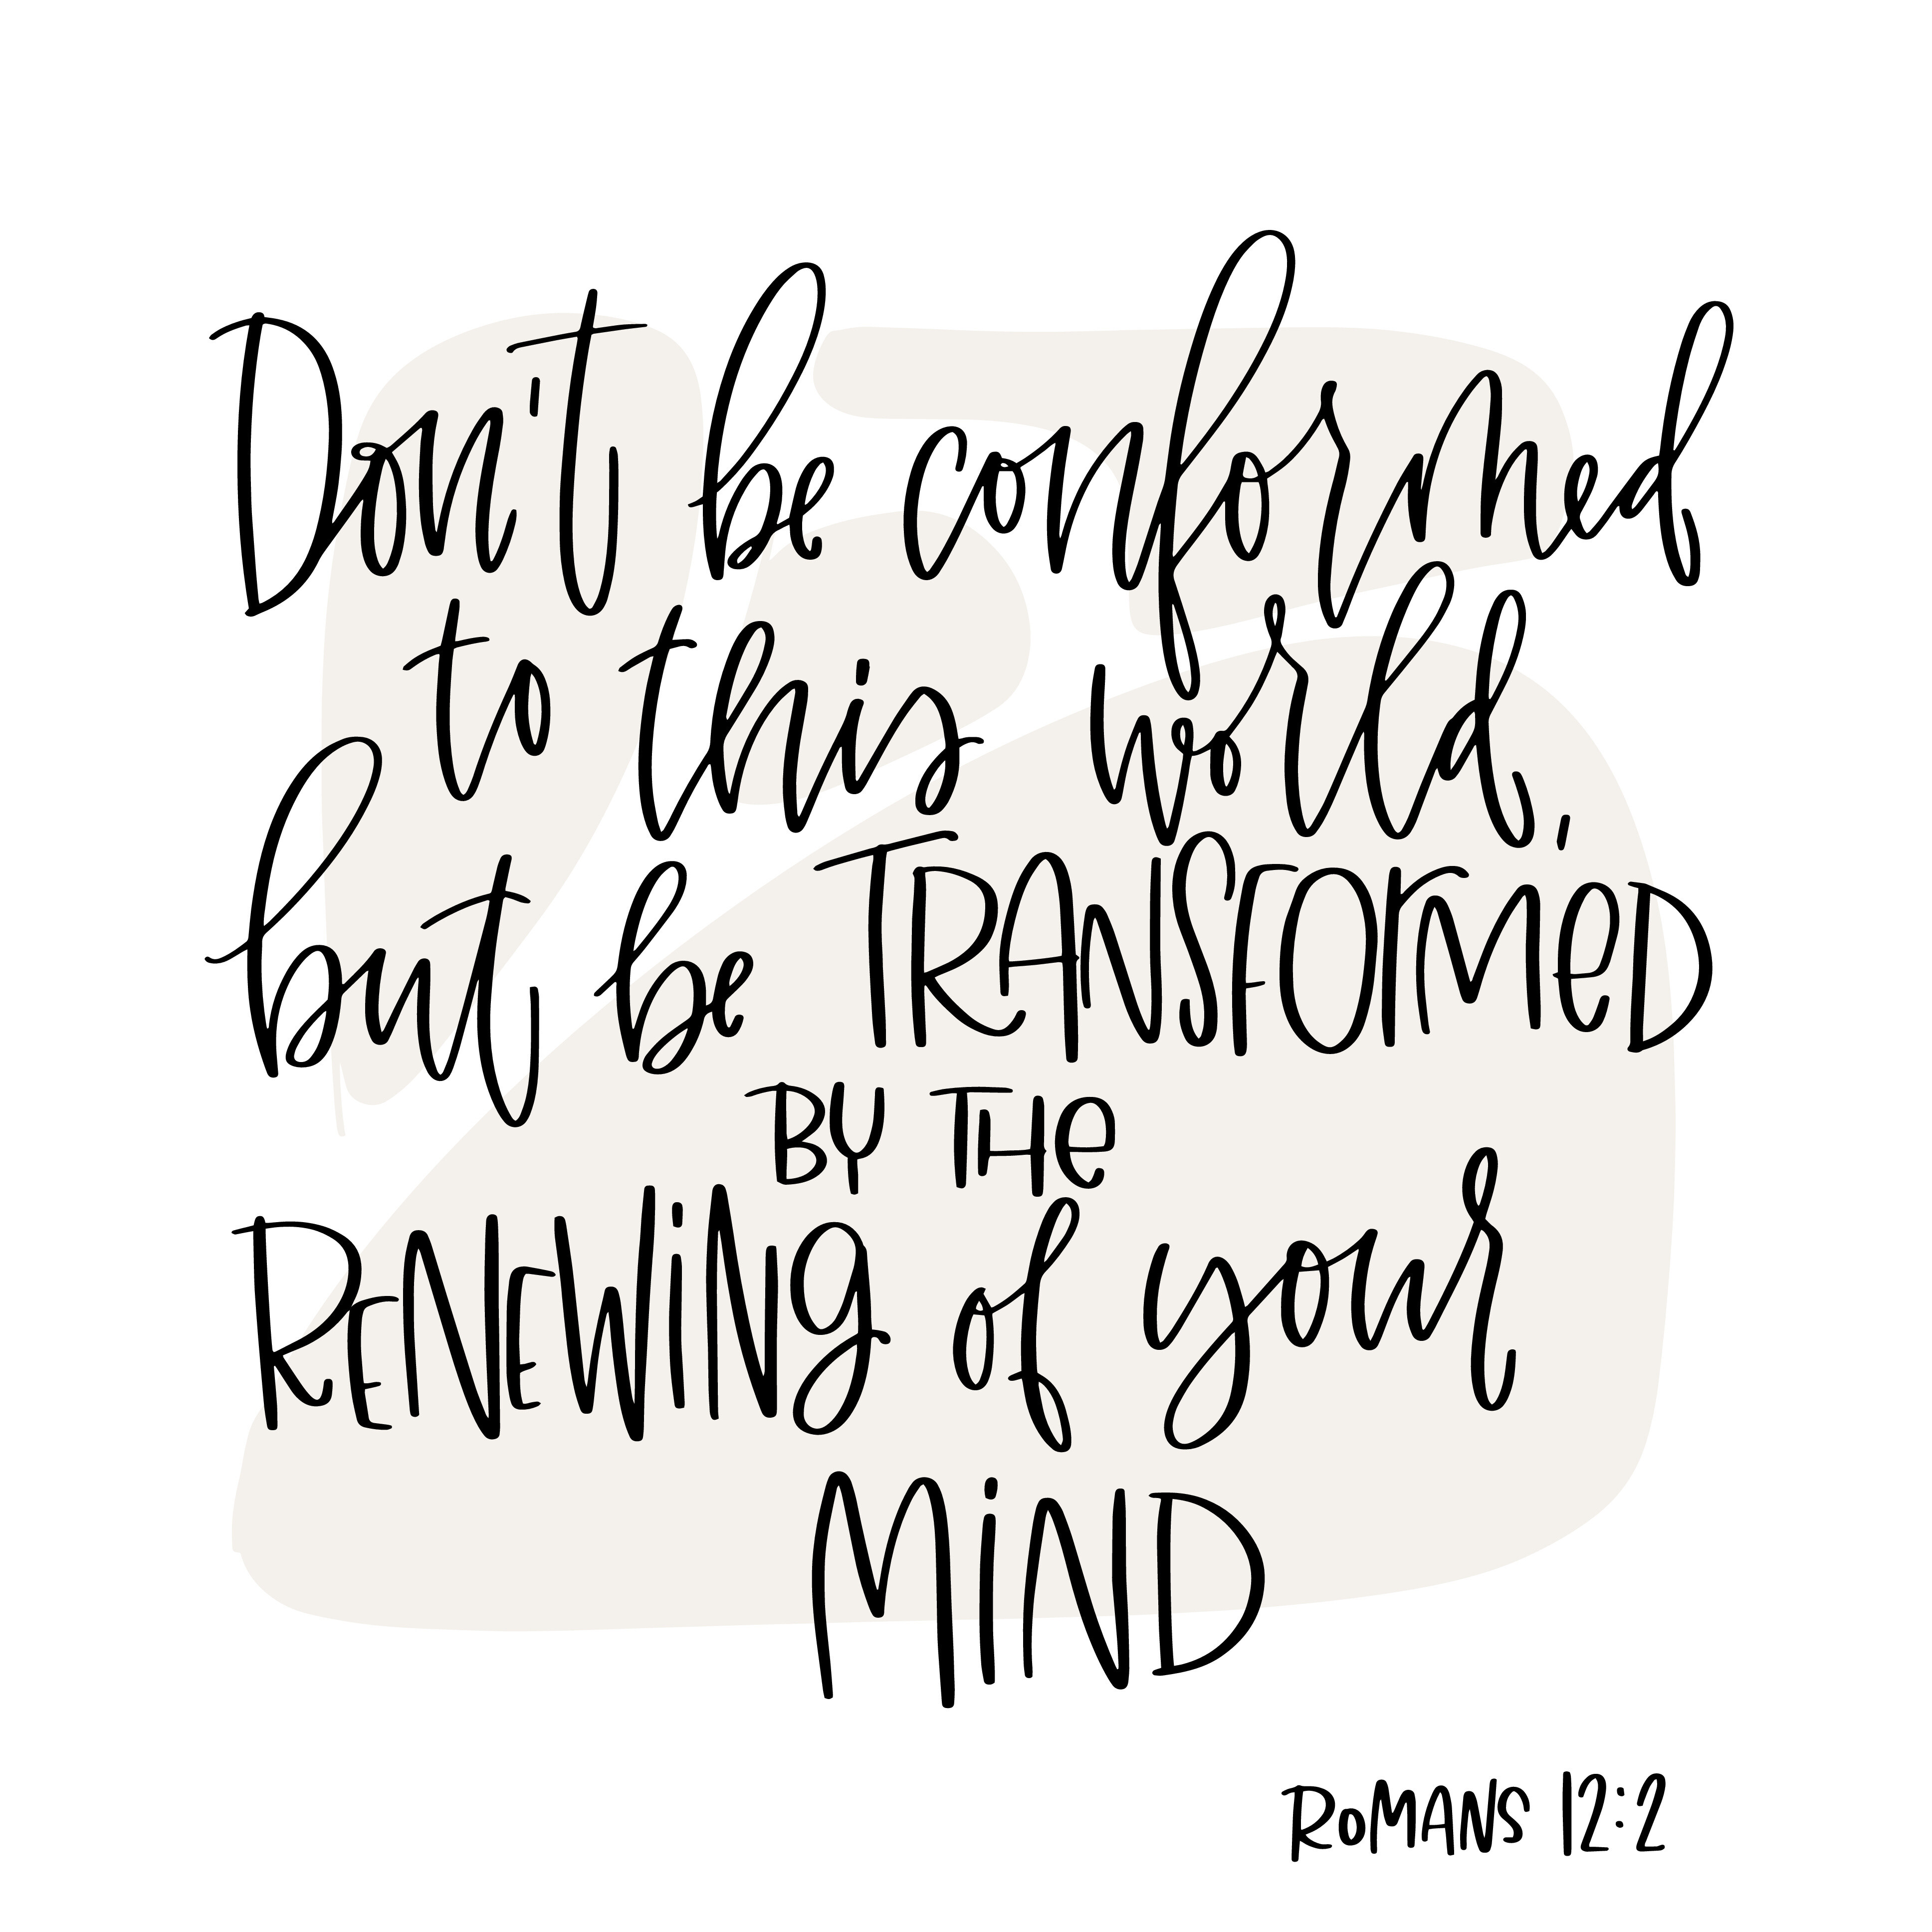 Don't be conformed
to this world,
but be TRANSFORMeD
BY THe
RENEWiNg of your
MiND
ROMANS 12:2